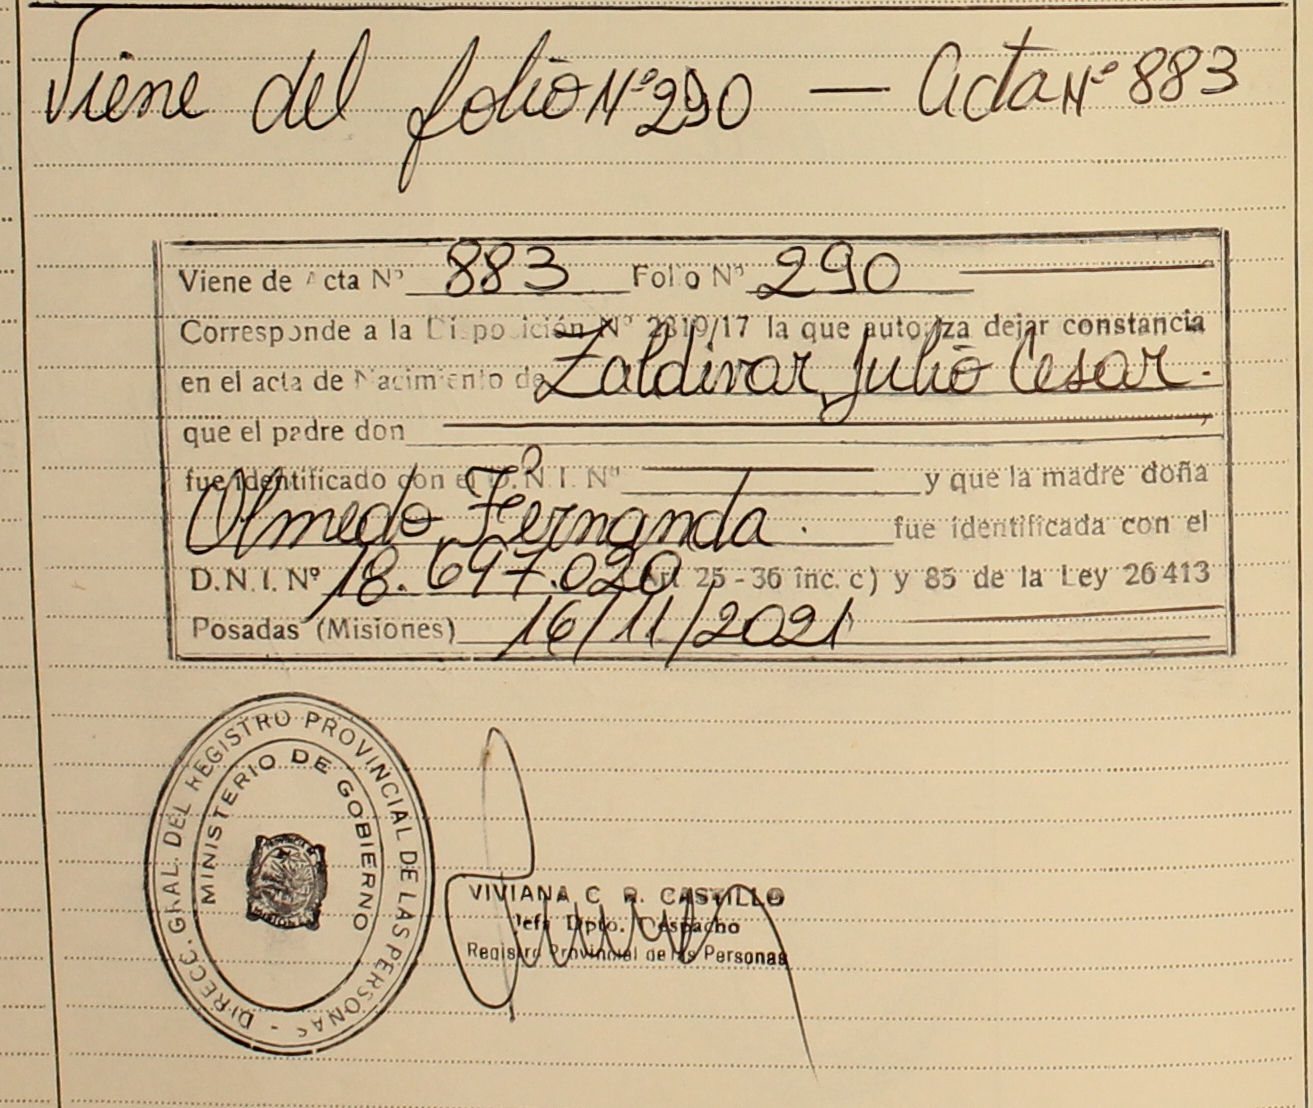 Viene del folio Nº 290 — Acta Nº 883
Viene de Acta Nº 883 Folio Nº 290
Corresponde a la Disposición Nº 2819/17 la que autoriza dejar constancia
en el acta de Nacimiento de Zaldivar, Julio Cesar.
que el padre don
fue identificado con el D.N.I. Nº y que la madre doña
Olmedo, Fernanda. fue identificada con el
D.N.I. Nº 18.697.020 Art 25 - 36 inc. c) y 85 de la Ley 26413
Posadas (Misiones) 16/11/2021
DIRECC. GRAL. DEL REGISTRO PROVINCIAL DE LAS PERSONAS -
MINISTERIO DE GOBIERNO
VIVIANA C. R. CASTILLO
Jefa Dpto. Despacho
Registro Provincial de las Personas